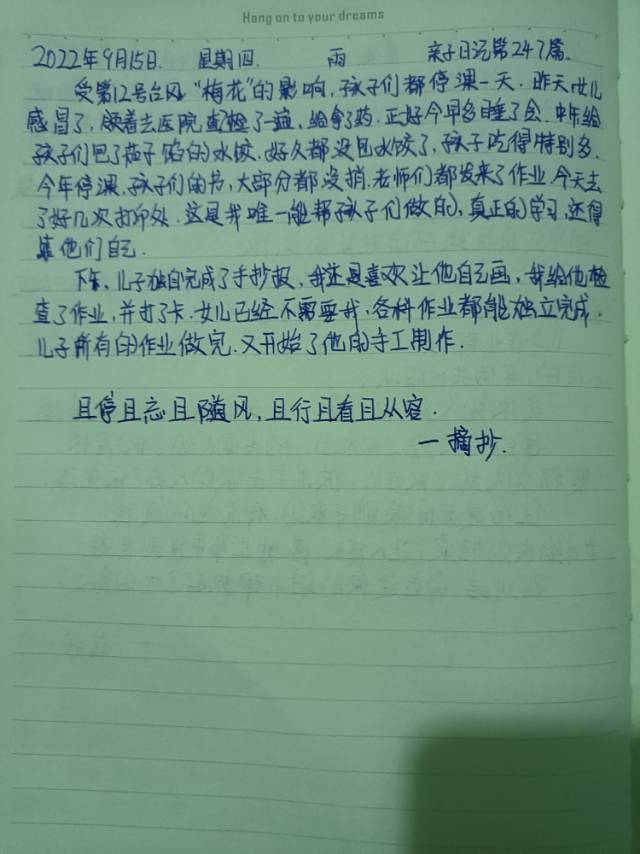 Hang on to your dreams
2022年9月15日. 星期四. 雨 亲子日记第247篇.
受第12号台风“梅花”的影响,孩子们都停课一天.昨天女儿
感冒了,领着去医院查检了一遍,给拿了药.正好今早多睡了会.中午给
孩子们包了茄子馅的水饺.好久都没包水饺了,孩子吃得特别多.
今年停课.孩子们的书,大部分都没捎.老师们都发来了作业.今天去
了好几次打印处.这是我唯一能帮孩子们做的,真正的学习,还得
靠他们自己.
下午,儿子独自完成了手抄报,我还是喜欢让他自己画,我给他检
查了作业,并打了卡.女儿已经不需要我,各科作业都能独立完成.
儿子所有的作业做完.又开始了他的手工制作.
且停且忘且随风,且行且看且从容.
一摘抄.